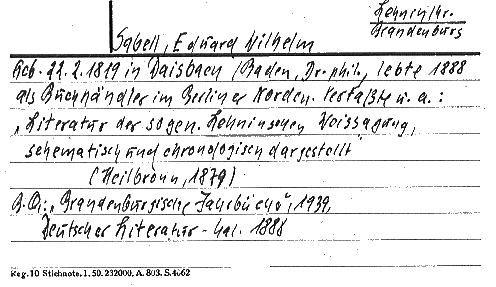 Lehnin/Kr.
Brandenburg
Sabell, Eduard Wilhelm
Geb. 22.2.1819 in Daisbach (Baden, Dr. phil., lebte 1888
als Buchhändler im Berliner Norden. Verfaßte u. a.:
„Literatur der sogen. Lehninschen Weissagung,
schematisch und chronologisch dargestellt"
(Heilbronn, 1879)
B.Qu: „Brandenburgische Jahrbücher", 1939,
Deutscher Literatur-Kal. 1888
Reg. 10 Stichnote. 1. 50. 232000. A. 803. S. 4662